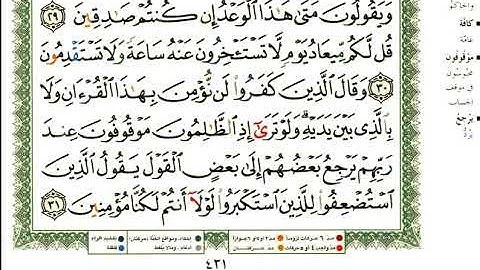 وَيَقُولُونَ مَتَىٰ هَٰذَا ٱلْوَعْدُ إِن كُنتُمْ صَٰدِقِينَ ٢٩
قُل لَّكُم مِّيعَادُ يَوْمٍ لَّا تَسْتَـْٔخِرُونَ عَنْهُ سَاعَةً وَلَا تَسْتَقْدِمُونَ
٣٠ وَقَالَ ٱلَّذِينَ كَفَرُوا۟ لَن نُّؤْمِنَ بِهَٰذَا ٱلْقُرْءَانِ وَلَا
بِٱلَّذِى بَيْنَ يَدَيْهِ وَلَوْ تَرَىٰٓ إِذِ ٱلظَّٰلِمُونَ مَوْقُوفُونَ عِندَ
رَبِّهِمْ يَرْجِعُ بَعْضُهُمْ إِلَىٰ بَعْضٍ ٱلْقَوْلَ يَقُولُ ٱلَّذِينَ
ٱسْتُضْعِفُوا۟ لِلَّذِينَ ٱسْتَكْبَرُوا۟ لَوْلَآ أَنتُمْ لَكُنَّا مُؤْمِنِينَ ٣١
كافة
عامة
موقوفون
محبوسون
في موقف
الحساب
يرجع
يردّ
٤٣١